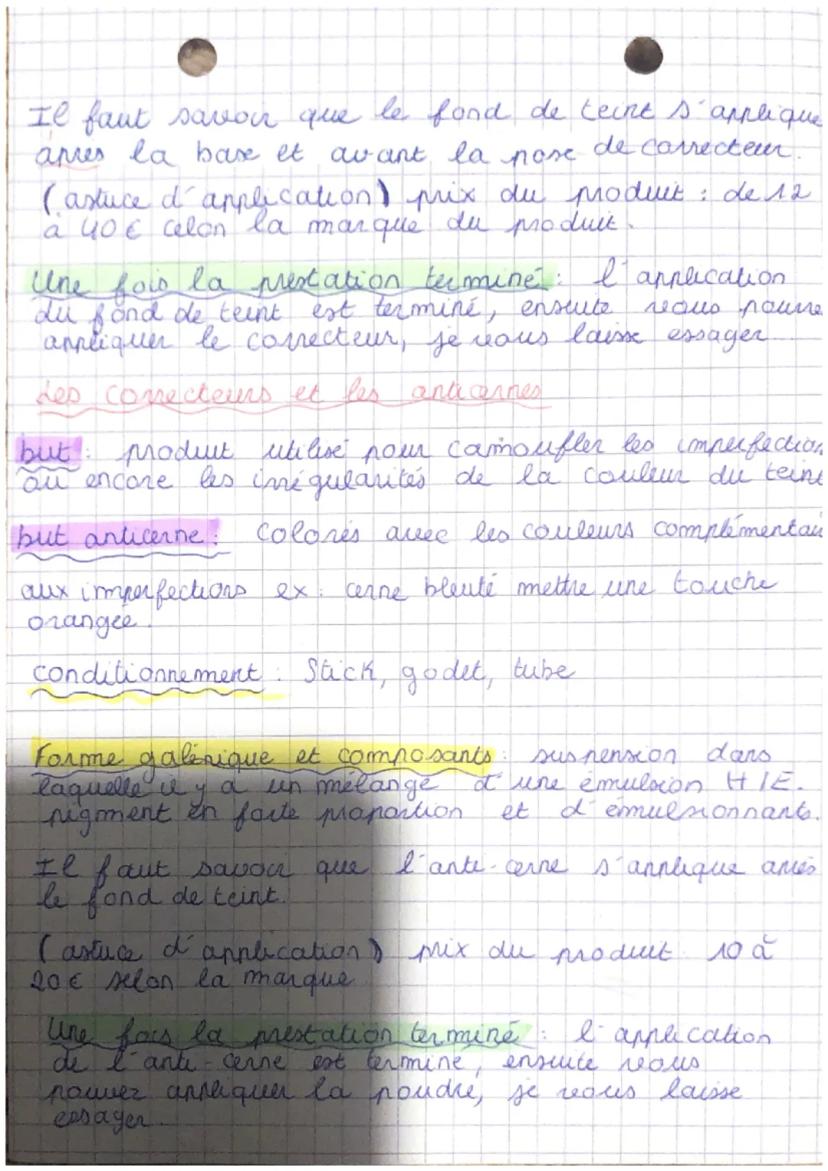 Il faut savoir que le fond de teint s'applique
après la base et avant la pose de correcteur.
(astuce d'application) prix du produit : de 12
à 40 € celon la marque du produit.
Une fois la prestation terminé : l'application
du fond de teint est terminé, ensuite vous pouvez
appliquer le correcteur, je vous laisse essayer
Les correcteurs et les anticernes
but : produit utilisé pour camoufler les imperfection
ou encore les irrégularités de la couleur du teint
but anticerne : Colorés avec les couleurs complémentai
aux imperfections ex : cerne bleuté mettre une touche
orangée.
conditionnement : Stick, godet, tube
Forme galénique et composants : suspension dans
laquelle il y a un mélange d'une émulsion H/E.
pigment en forte proportion et d'émulsionnants.
Il faut savoir que l'anti-cerne s'applique après
le fond de teint.
(astuce d'application) prix du produit 10 à
20 € selon la marque
Une fois la prestation terminé : l'application
de l'anti-cerne est terminé, ensuite vous
pouvez appliquer la poudre, je vous laisse
essayer